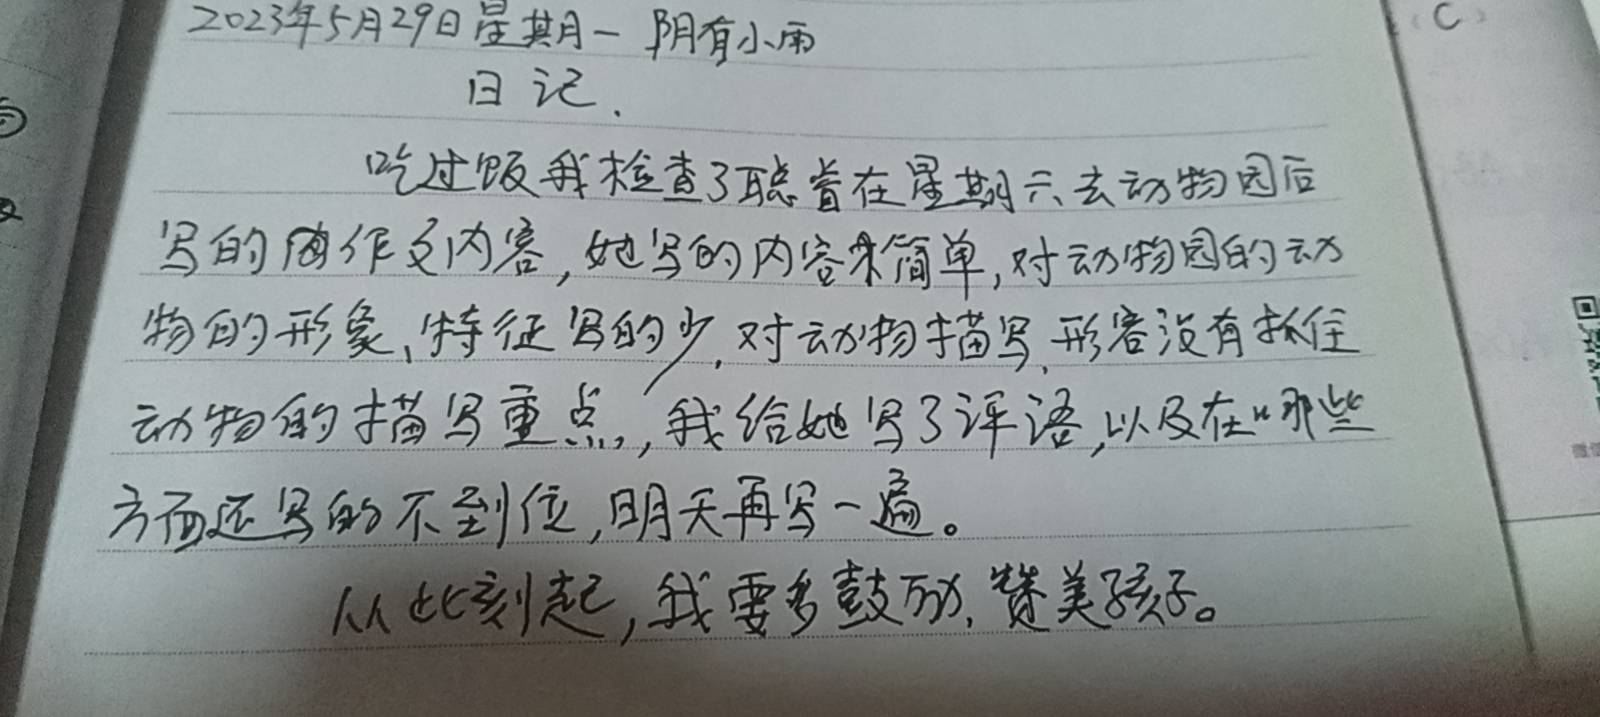 2023年5月29日星期一 阴有小雨
日记.
吃过饭我检查了聪睿在星期六去动物园后
写的作文内容,她写的内容简单,对动物园的动
物的形象、特征写的少,对动物描写、形容没有抓住
动物的描写重点,我给她写了评语,以及在哪些
方面还写的不到位,明天再写一遍。
从此刻起,我要多鼓励、赞美孩子。
(C)